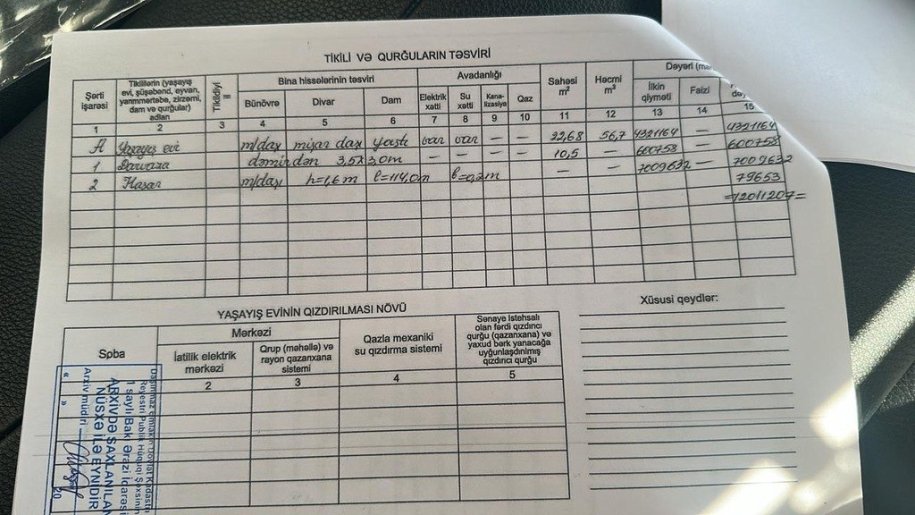 TİKİLİ VƏ QURĞULARIN TƏSVİRİ
Şərti işarəsi
Tikililərin (yaşayış evi, şüşəbənd, eyvan, yarımmərtəbə, zirzəmi, dam və qurğular) adları
Tikildiyi
Bina hissələrinin təsviri
Bünövrə
Divar
Dam
Avadanlığı
Elektrik xətti
Su xətti
Kanalizasiya
Qaz
Sahəsi m²
Həcmi m³
Dəyəri
İlkin qiyməti
Faizi
1 2 3 4 5 6 7 8 9 10 11 12 13 14 15
A Yaşayış evi m/daş mişar daş yastı var var — — 22,68 56,7 4321164 — 4321164
1 Darvaza dəmirdən 3,5x3,0m — — — — 10,5 — 600758 — 600758
2 Hasar m/daş h=1,6 m l=114,0m b=0,2m — — 7009632 — 7009632
79653
=12011207=
YAŞAYIŞ EVİNİN QIZDIRILMASI NÖVÜ
Xüsusi qeydlər:
Soba
Mərkəzi
İstilik elektrik mərkəzi
Qrup (məhəllə) və rayon qazanxana sistemi
Qazla mexaniki su qızdırma sistemi
Sənaye istehsalı olan fərdi qızdırıcı qurğu (qazanxana) və yaxud bərk yanacağa uyğunlaşdırılmış qızdırıcı qurğu
2 3 4 5
Daşınmaz Əmlakın Dövlət Kadastrı
Reyestri Publik Hüquqi Şəxsinin
1 saylı Bakı Ərazi İdarəsi
ARXİVDƏ SAXLANILAN
NÜSXƏ İLƏ EYNİDİR
Arxiv müdiri
20